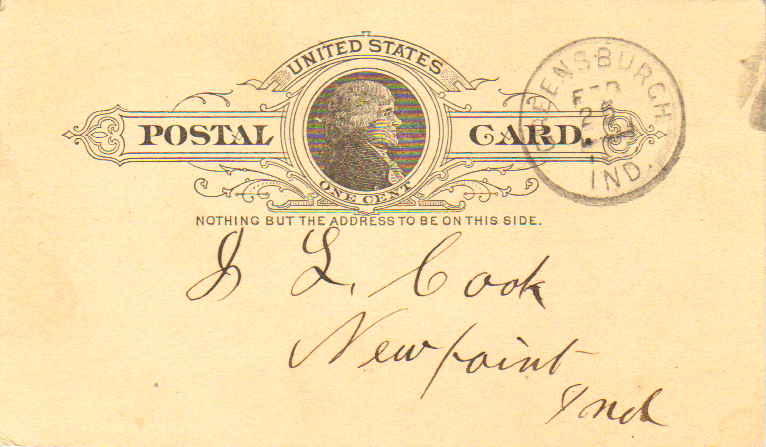 UNITED STATES
POSTAL CARD.
ONE CENT
NOTHING BUT THE ADDRESS TO BE ON THIS SIDE.
GREENSBURGH
FEB
IND.
L. Cook
Newpoint
Ind